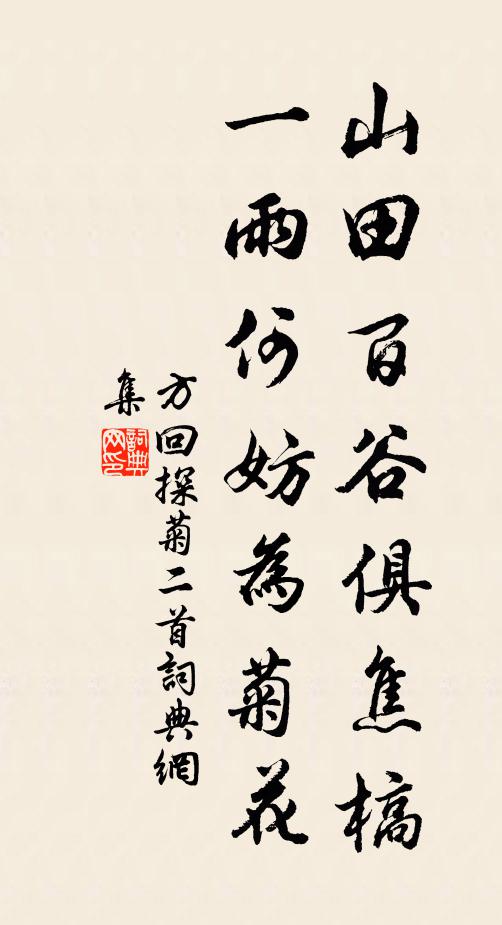 山田百谷俱焦槁
一雨何妨為菊花
方回探菊二首詞典網
集
詞典
网印